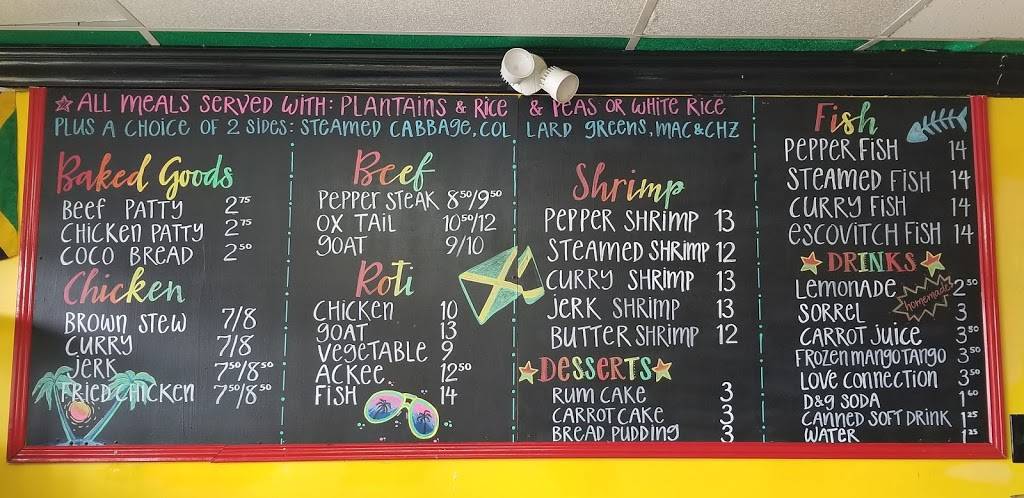 ALL MEALS SERVED WITH: PLANTAINS & RICE & PEAS OR WHITE RICE
PLUS A CHOICE OF 2 SIDES: STEAMED CABBAGE, COL LARD GREENS, MAC & CHZ
Baked Goods
BEEF PATTY 2.75
CHICKEN PATTY 2.75
COCO BREAD 2.50
Chicken
BROWN STEW 7/8
CURRY 7/8
JERK 7.50/8.50
FRIED CHICKEN 7.50/8.50
Beef
PEPPER STEAK 8.50/9.50
OX TAIL 10.50/12
GOAT 9/10
Roti
CHICKEN 10
GOAT 13
VEGETABLE 9
ACKEE 12.50
FISH 14
Shrimp
PEPPER SHRIMP 13
STEAMED SHRIMP 12
CURRY SHRIMP 13
JERK SHRIMP 13
BUTTER SHRIMP 12
DESSERTS
RUM CAKE 3
CARROT CAKE 3
BREAD PUDDING 3
Fish
PEPPER FISH 14
STEAMED FISH 14
CURRY FISH 14
ESCOVITCH FISH 14
DRINKS
homemade
LEMONADE 2.50
SORREL 3
CARROT JUICE 3.50
FROZEN MANGO TANGO 3.50
LOVE CONNECTION 3.50
D&G SODA 1.60
CANNED SOFT DRINK 1.25
WATER 1.25